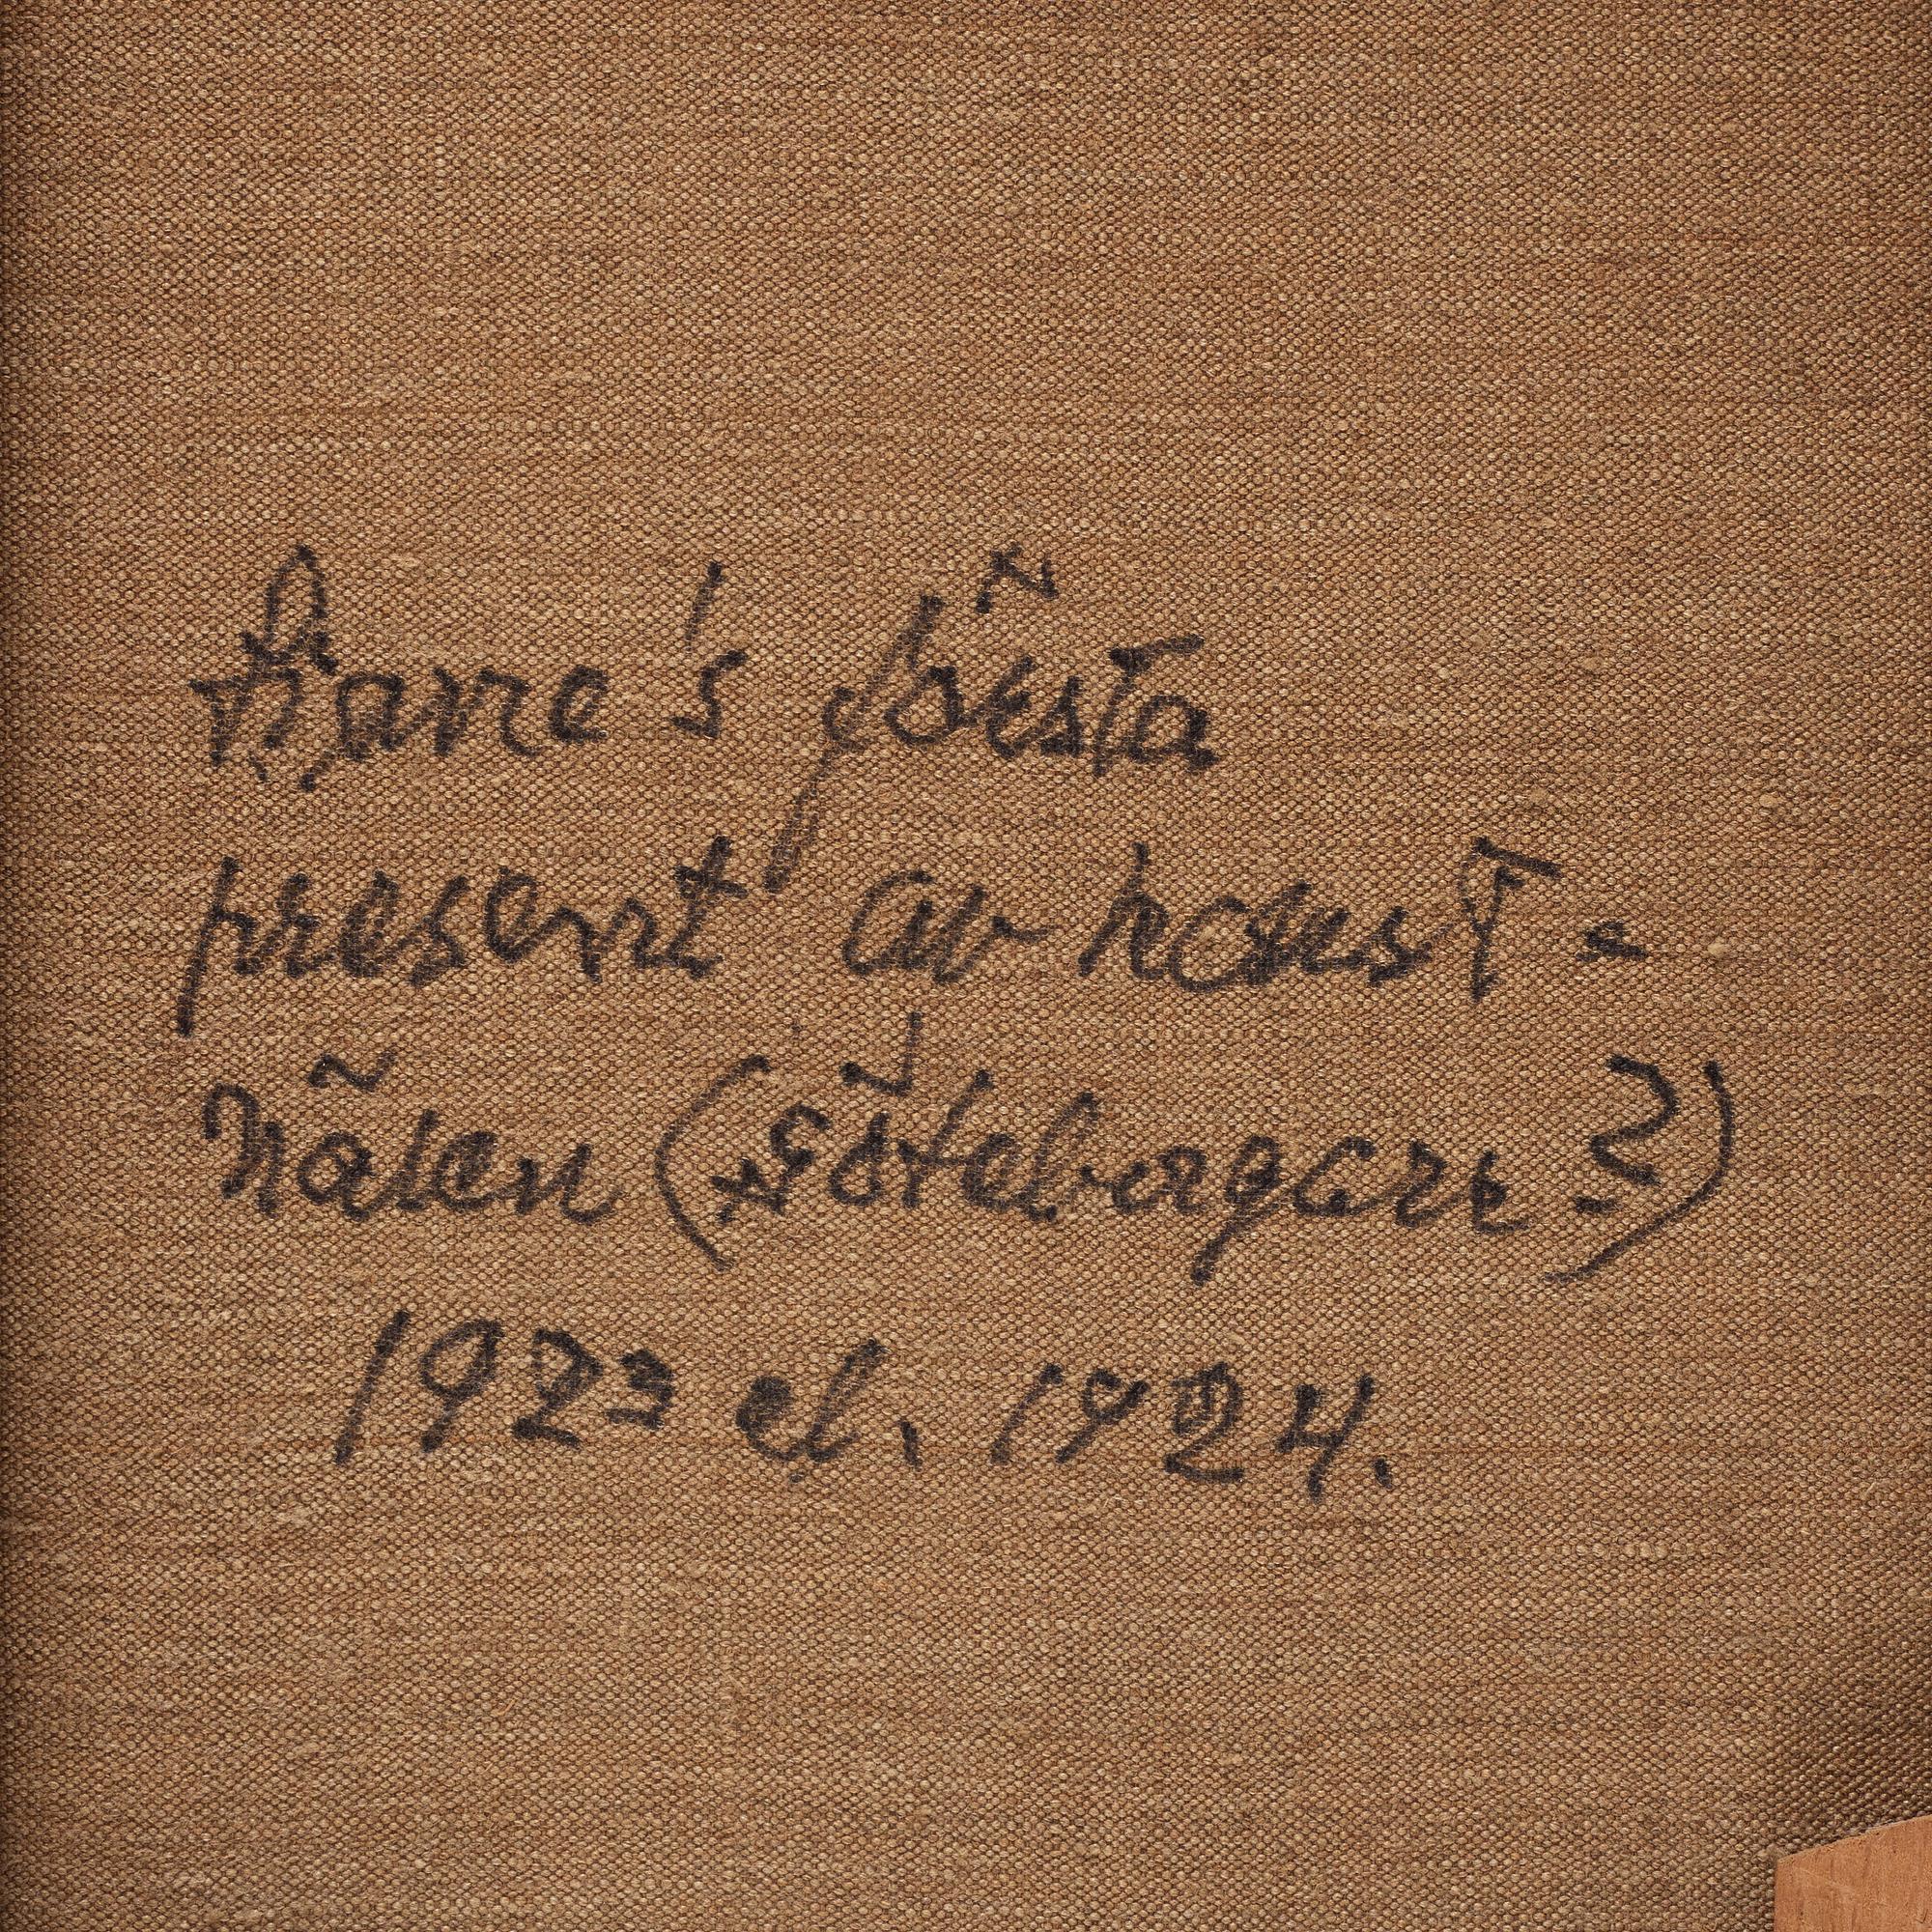 Hane's första
present av konst-
nären (götebergare?)
1923 el. 1924.